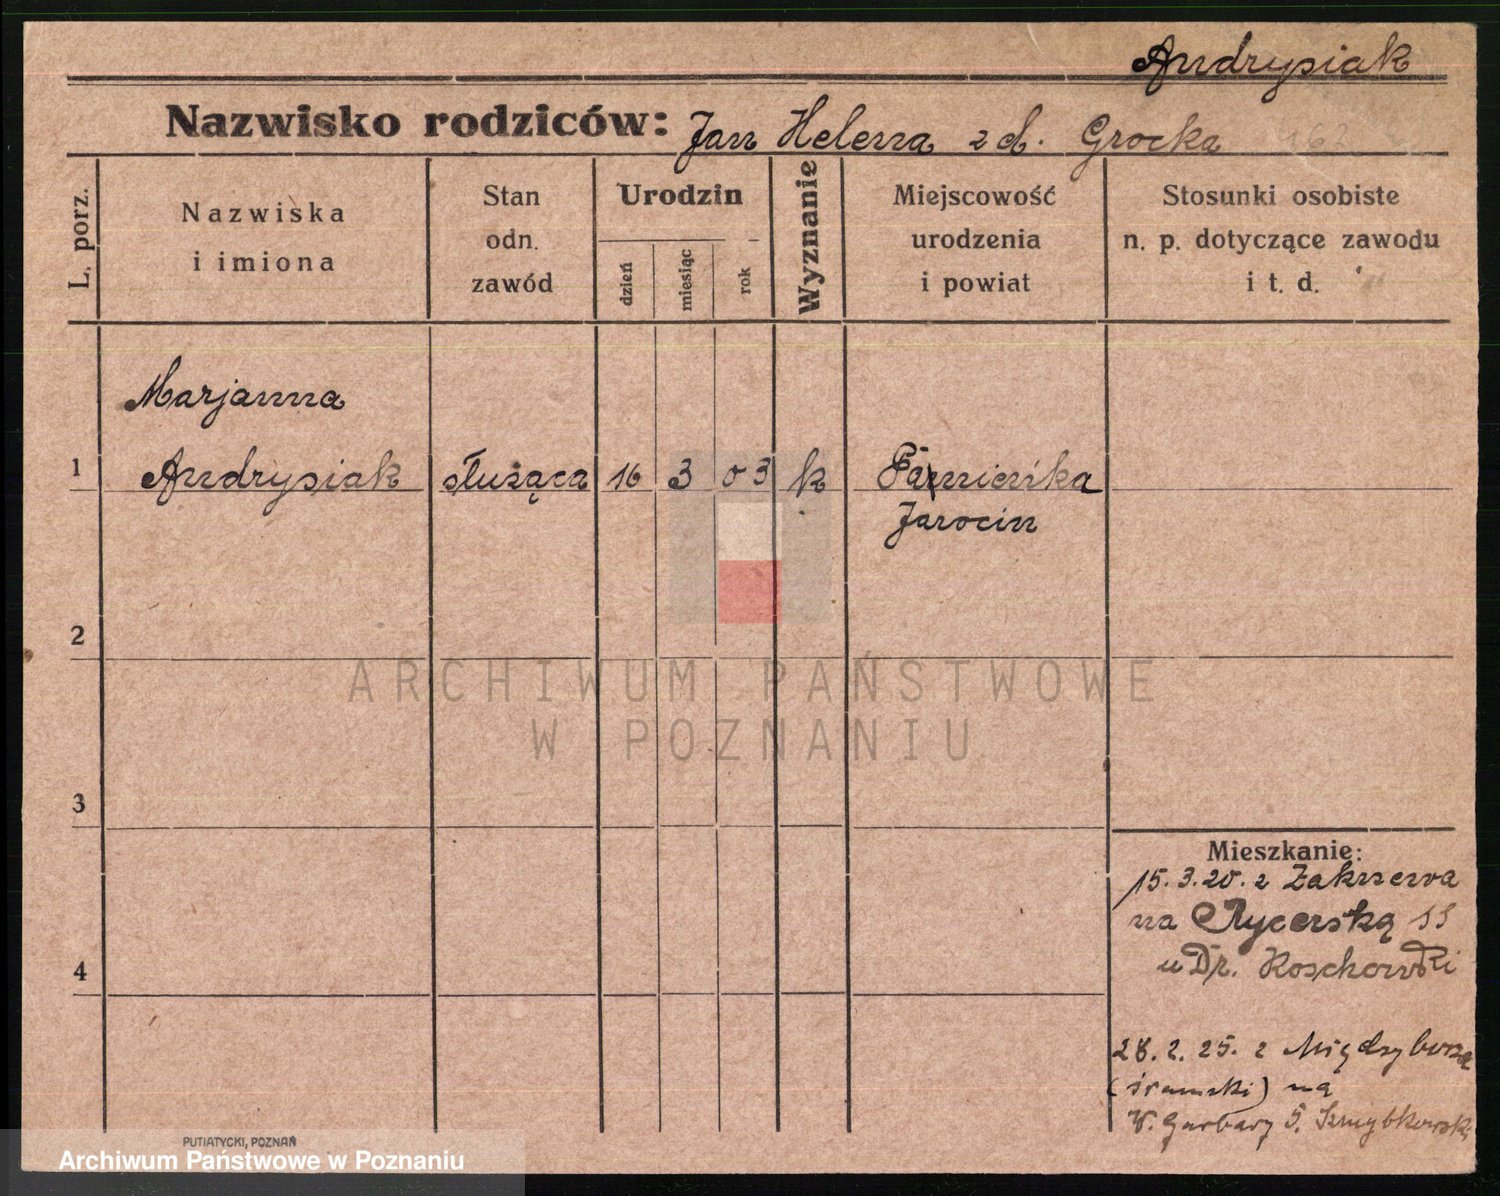 Andrysiak
Nazwisko rodziców: Jan Helena z d. Grocka 162
L. porz.
Nazwiska
i imiona
Stan
odn.
zawód
Urodzin
dzień
miesiąc
rok
Wyznanie
Miejscowość
urodzenia
i powiat
Stosunki osobiste
n. p. dotyczące zawodu
i t. d.
Marjanna
1 Andrysiak służąca 16 3 03 k
Jarocin
2
ARCHIWUM PAŃSTWOWE
W POZNANIU
3
Mieszkanie:
15.3.20. z Zakrzewa
na Rycerską
u Dr. Koschowski
4
28.2.25. z
(śremski) na
W. Garbary 5.
PUTIATYCKI, POZNAŃ
Archiwum Państwowe w Poznaniu